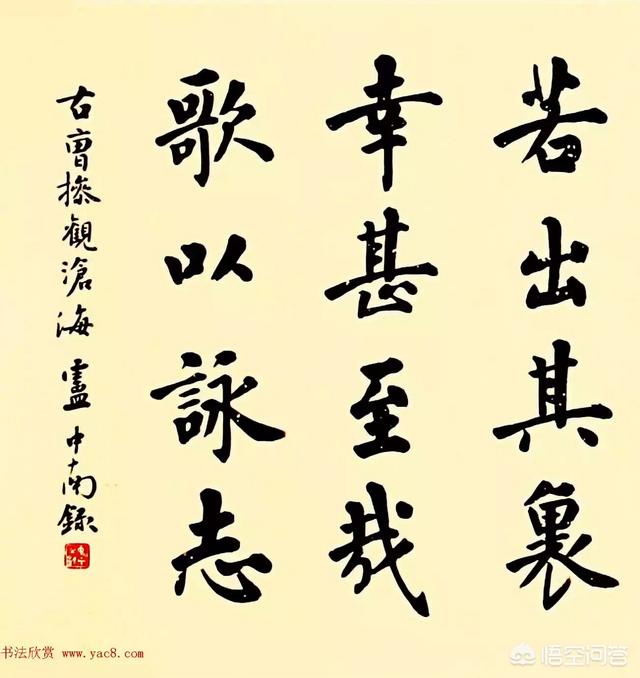 若出其裏
幸甚至哉
歌以詠志
右曹操觀滄海 盧中南錄
书法欣赏 www.yac8.com
悟空问答